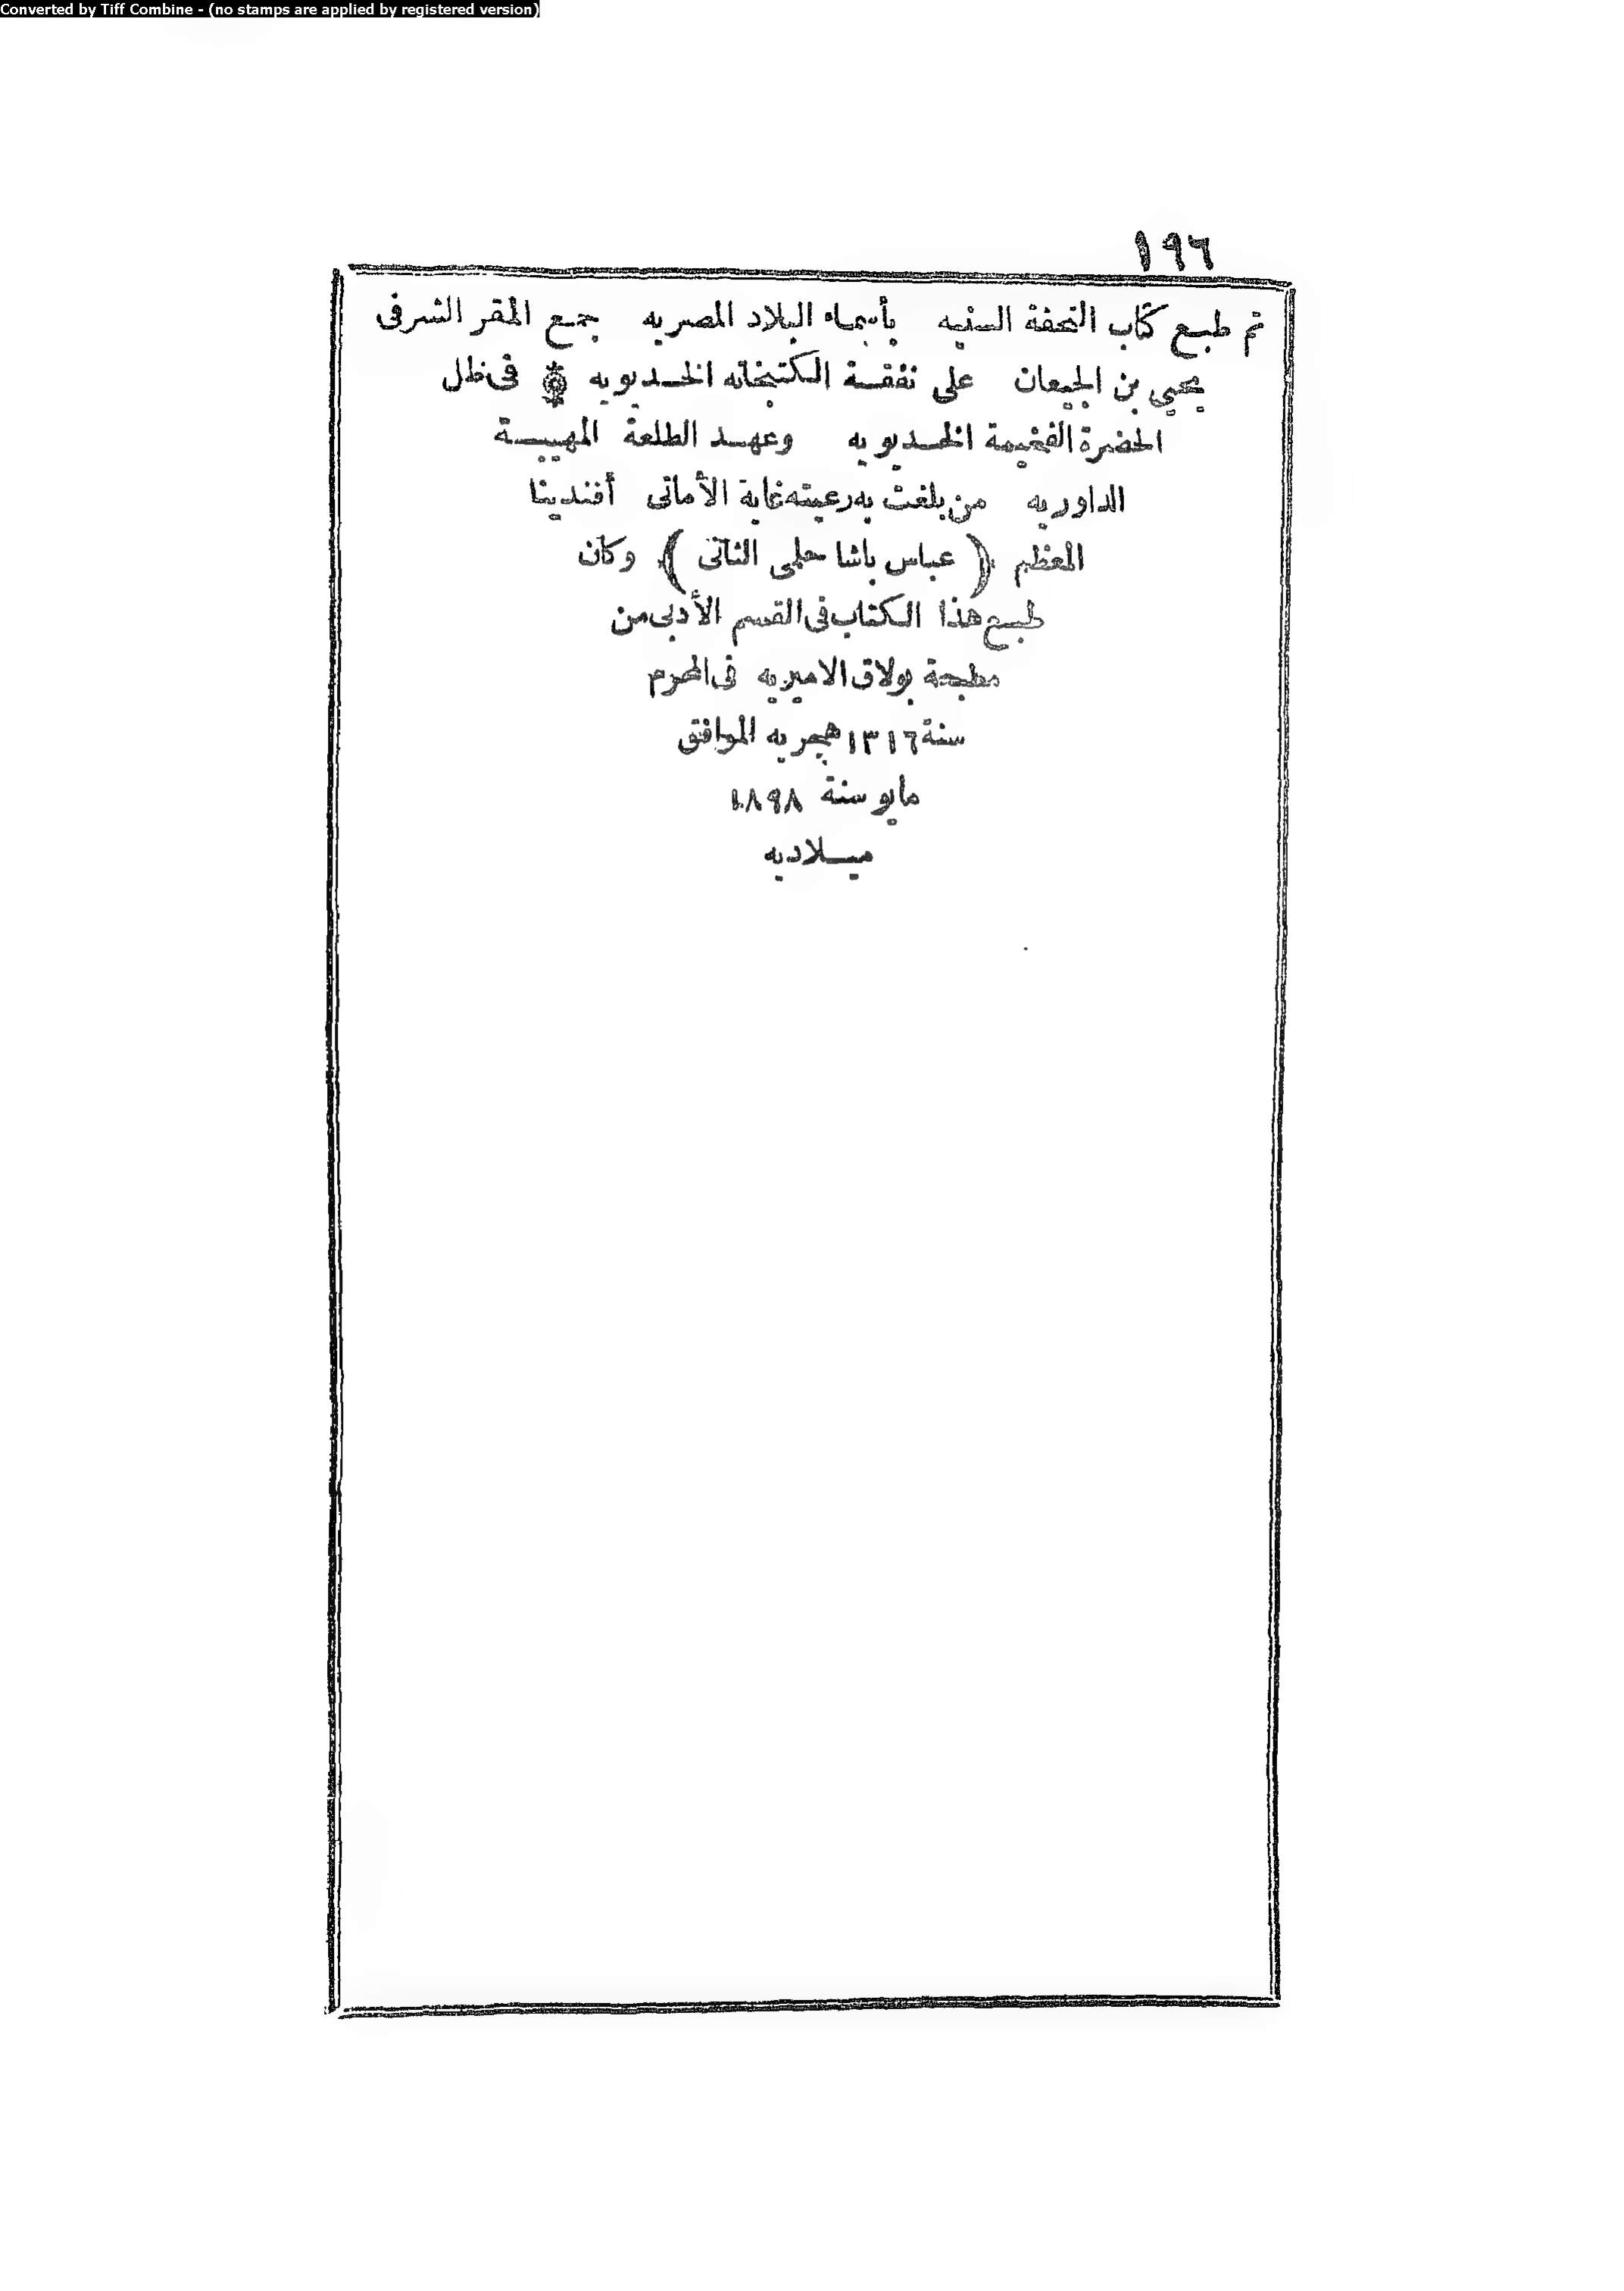 Converted by Tiff Combine - (no stamps are applied by registered version)
١٩٦
تم طبع كتاب التحفة السنيه بأسماء البلاد المصريه جمع المقر الشرفى
يحيي بن الجيعان على نفقة الكتبخانه الخديويه فى ظل
الحضرة الفخيمة الخديويه وعهد الطلعة المهيبة
الداوريه من بلغت به رعيته غاية الأمانى أفندينا
المعظم ﴿ عباس باشا حلمى الثانى ﴾ وكان
طبع هذا الكتاب فى القسم الأدبى من
مطبعة بولاق الاميريه فى المحرم
سنة ١٣١٦ هجريه الموافق
مايو سنة ١٨٩٨
ميلاديه